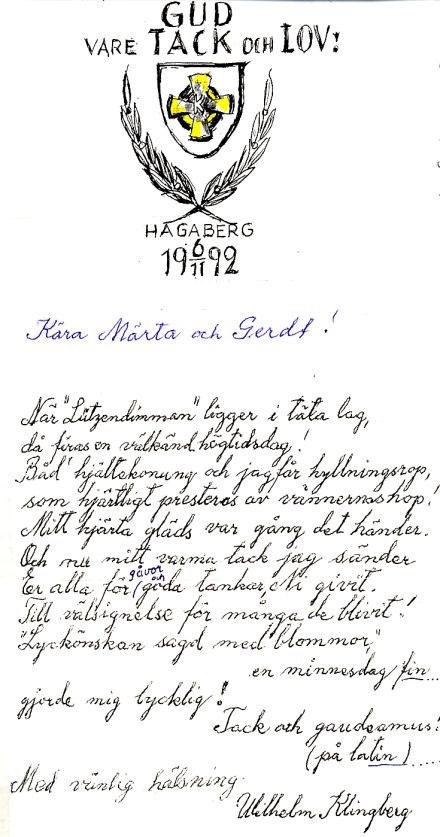 GUD
VARE TACK OCH LOV!
HAGABERG
19 6/11 92
Kära Märta och Gerdt!
När "Lützendimman" ligger i täta lag,
då firas en välkänd högtidsdag!
Båd' hjältekonung och jag får hyllningsrop,
som hjärtligt presteras av vännernas hop!
Mitt hjärta gläds var gång det händer.
Och nu mitt varma tack jag sänder
Er alla för gåvor och goda tankar, Ni givit.
Till välsignelse för många de blivit!
"Lyckönskan sagd med blommor"
en minnesdag fin...
gjorde mig lycklig!
Tack och gaudeamus!
(på latin)....
Med vänlig hälsning
Wilhelm Klingberg